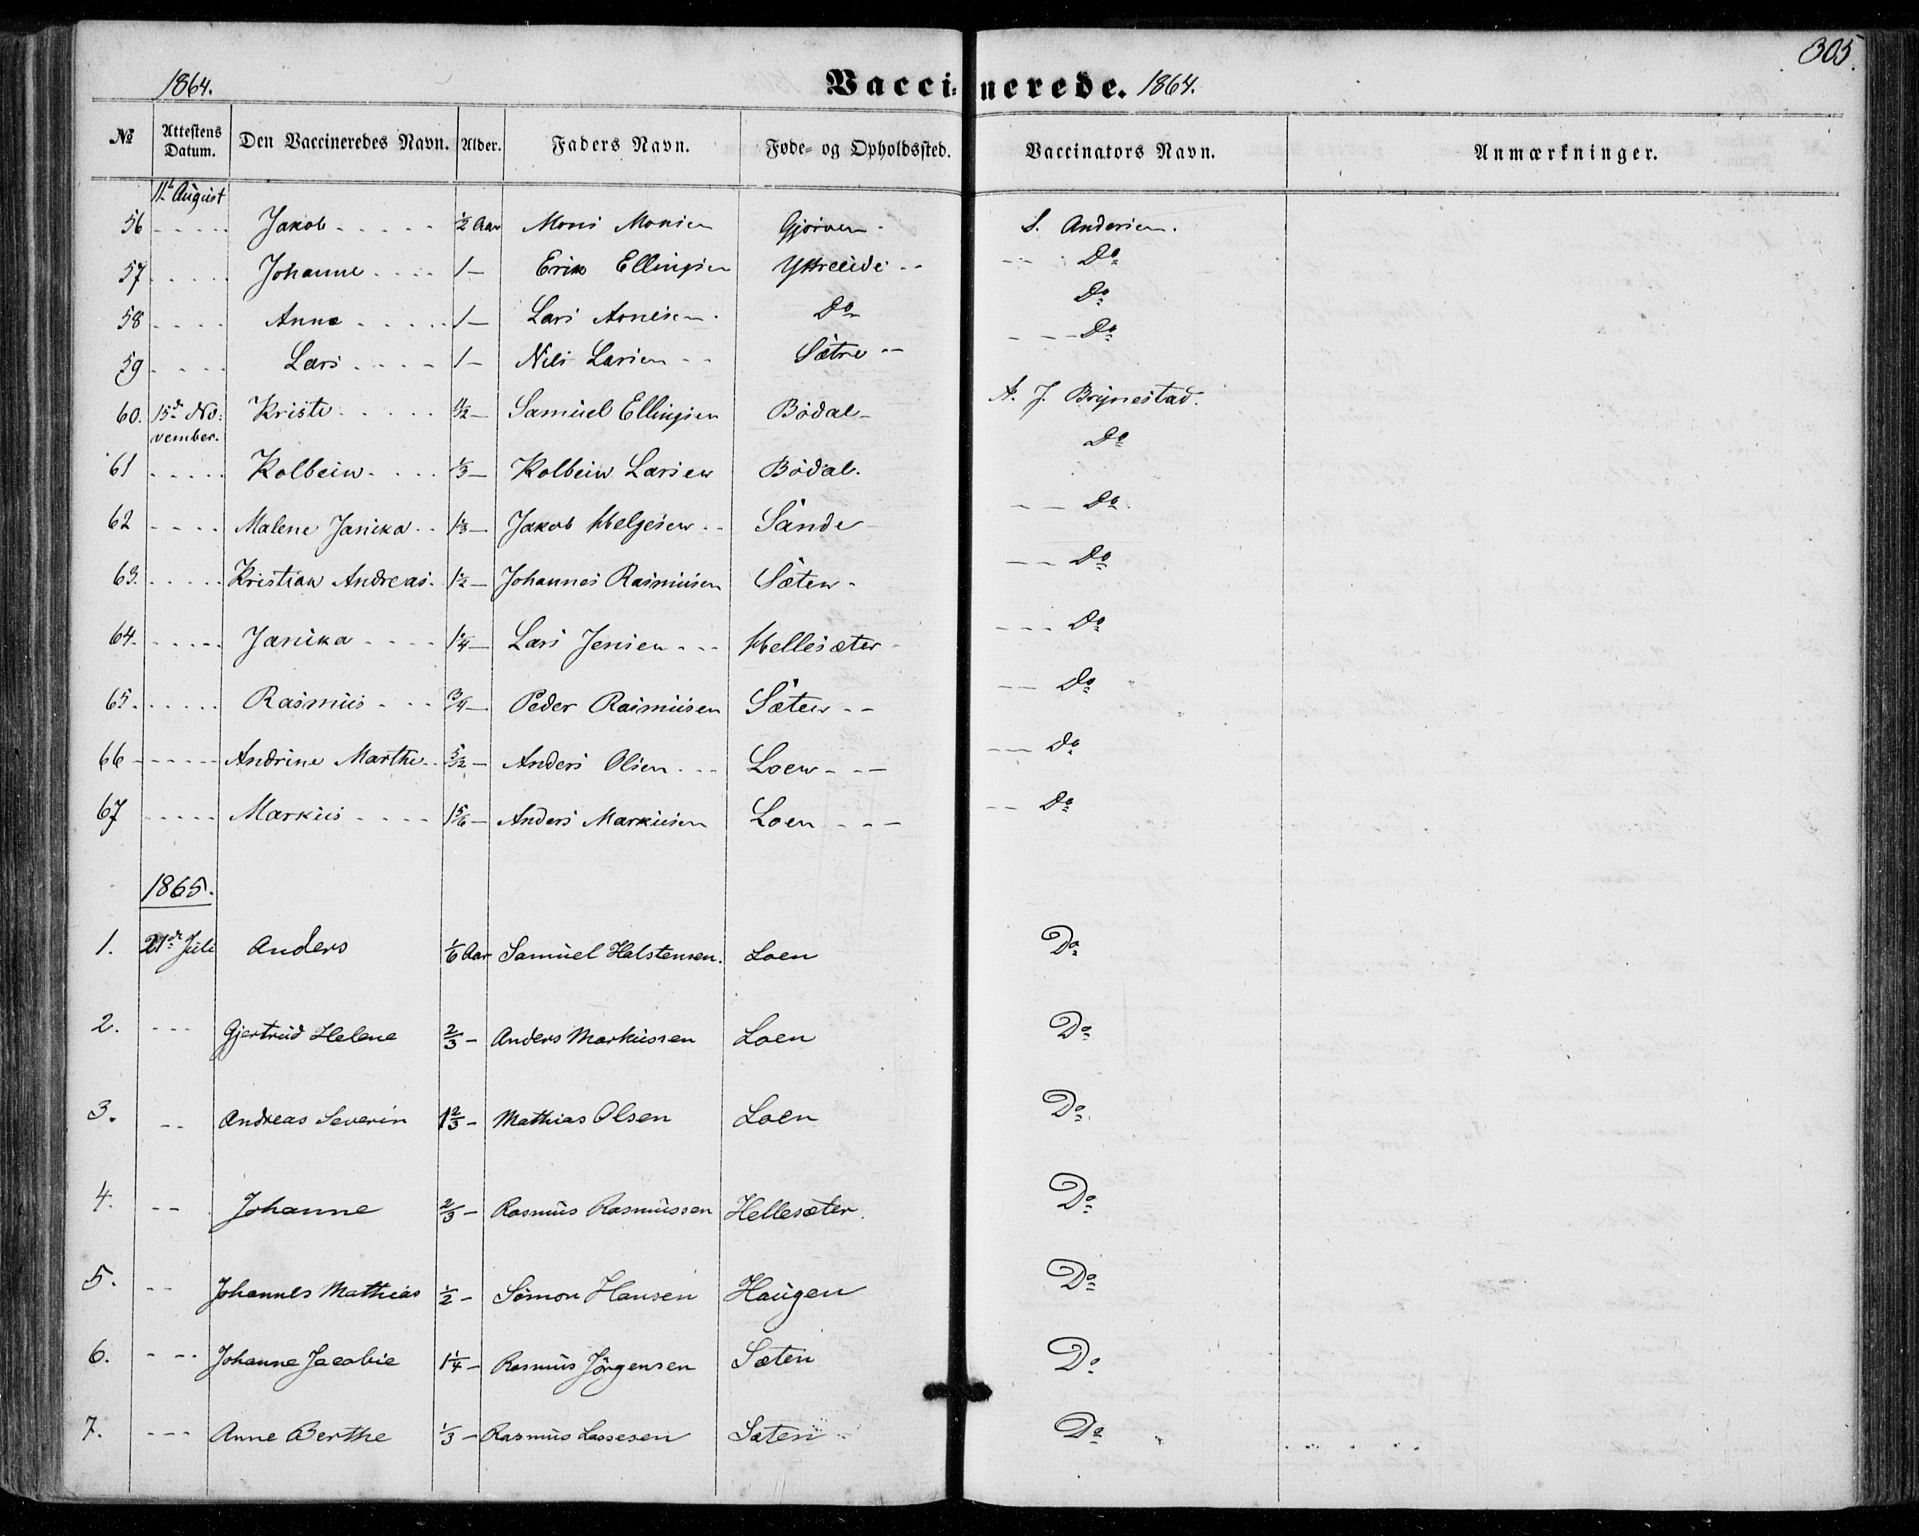 305.
1864. Vaccinerede. 1864.
№ Attestens Datum. Den Vaccineredes Navn. Alder. Faders Navn. Føde- og Opholdssted. Vaccinators Navn. Anmærkninger.
11te August
56 Jakob 1/2 Aar Mons Monsen Gjørven S. Andersen.
57 Johanne 1 Erik Ellingsen Ytreeide Do
58 Anna 1 Lars Do Do
59 Lars 1 Nils Larsen Sætre Do
60. 15de November. Kristi 1/2 Samuel Ellingsen Bødal A. J. Brynestad.
61 Kolbein 1/3 Kolbein Larsen Bødal. Do
62 Malene Janika 1/3 Jakob Helgesen Sande Do
63. Kristian Andreas 1/2 Johannes Rasmusen Sæten Do
64. Janika 1/4 Lars Jensen Hellesæter Do
65. Rasmus 3/4 Peder Rasmusen Sæten Do
66 Andrine Marthe 5/12 Anders Olsen Loen Do
67 Markus 1 5/6 Anders Markusen Loen Do
1865.
1. 21de Juli Anders 1/6 Aar Samuel Halstensen. Loen Do
2. Gjertrud Helene 2/3 Anders Markussen Loen Do
3. Andreas Severin 1 2/3 Mathias Olsen Loen Do
4. Johanne 2/3 Rasmus Rasmussen Hellesæter. Do
5. Johannes Mathias 1/2 Simon Hansen Haugen Do
6. Johanne Jacobie 1 1/4 Rasmus Jörgensen Sæten Do
7. Anne Berthe 1/3 Rasmus Lassesen Sæten Do